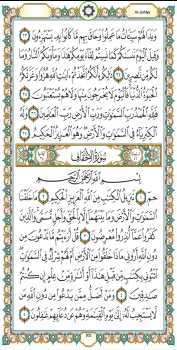 Al-Jathiya
وَبَدَا لَهُمْ سَيِّـَٔاتُ مَا عَمِلُوا۟ وَحَاقَ بِهِم مَّا كَانُوا۟ بِهِۦ يَسْتَهْزِءُونَ ٣٣
وَقِيلَ ٱلْيَوْمَ نَنسَىٰكُمْ كَمَا نَسِيتُمْ لِقَآءَ يَوْمِكُمْ هَٰذَا وَمَأْوَىٰكُمُ ٱلنَّارُ وَمَا لَكُم
مِّن نَّٰصِرِينَ ٣٤ ذَٰلِكُم بِأَنَّكُمُ ٱتَّخَذْتُمْ ءَايَٰتِ ٱللَّهِ هُزُوًا وَغَرَّتْكُمُ
ٱلْحَيَوٰةُ ٱلدُّنْيَا فَٱلْيَوْمَ لَا يُخْرَجُونَ مِنْهَا وَلَا هُمْ يُسْتَعْتَبُونَ ٣٥
فَلِلَّهِ ٱلْحَمْدُ رَبِّ ٱلسَّمَٰوَٰتِ وَرَبِّ ٱلْأَرْضِ رَبِّ ٱلْعَٰلَمِينَ ٣٦ وَلَهُ
ٱلْكِبْرِيَآءُ فِى ٱلسَّمَٰوَٰتِ وَٱلْأَرْضِ وَهُوَ ٱلْعَزِيزُ ٱلْحَكِيمُ ٣٧
سُورَةُ ٱلْأَحْقَافِ
بِسْمِ ٱللَّهِ ٱلرَّحْمَٰنِ ٱلرَّحِيمِ
حمٓ ١ تَنزِيلُ ٱلْكِتَٰبِ مِنَ ٱللَّهِ ٱلْعَزِيزِ ٱلْحَكِيمِ ٢ مَا خَلَقْنَا
ٱلسَّمَٰوَٰتِ وَٱلْأَرْضَ وَمَا بَيْنَهُمَآ إِلَّا بِٱلْحَقِّ وَأَجَلٍ مُّسَمًّى وَٱلَّذِينَ
كَفَرُوا۟ عَمَّآ أُنذِرُوا۟ مُعْرِضُونَ ٣ قُلْ أَرَءَيْتُم مَّا تَدْعُونَ مِن
دُونِ ٱللَّهِ أَرُونِى مَاذَا خَلَقُوا۟ مِنَ ٱلْأَرْضِ أَمْ لَهُمْ شِرْكٌ فِى ٱلسَّمَٰوَٰتِ
ٱئْتُونِى بِكِتَٰبٍ مِّن قَبْلِ هَٰذَآ أَوْ أَثَٰرَةٍ مِّنْ عِلْمٍ إِن كُنتُمْ
صَٰدِقِينَ ٤ وَمَنْ أَضَلُّ مِمَّن يَدْعُوا۟ مِن دُونِ ٱللَّهِ مَن
لَّا يَسْتَجِيبُ لَهُۥٓ إِلَىٰ يَوْمِ ٱلْقِيَٰمَةِ وَهُمْ عَن دُعَآئِهِمْ غَٰفِلُونَ ٥